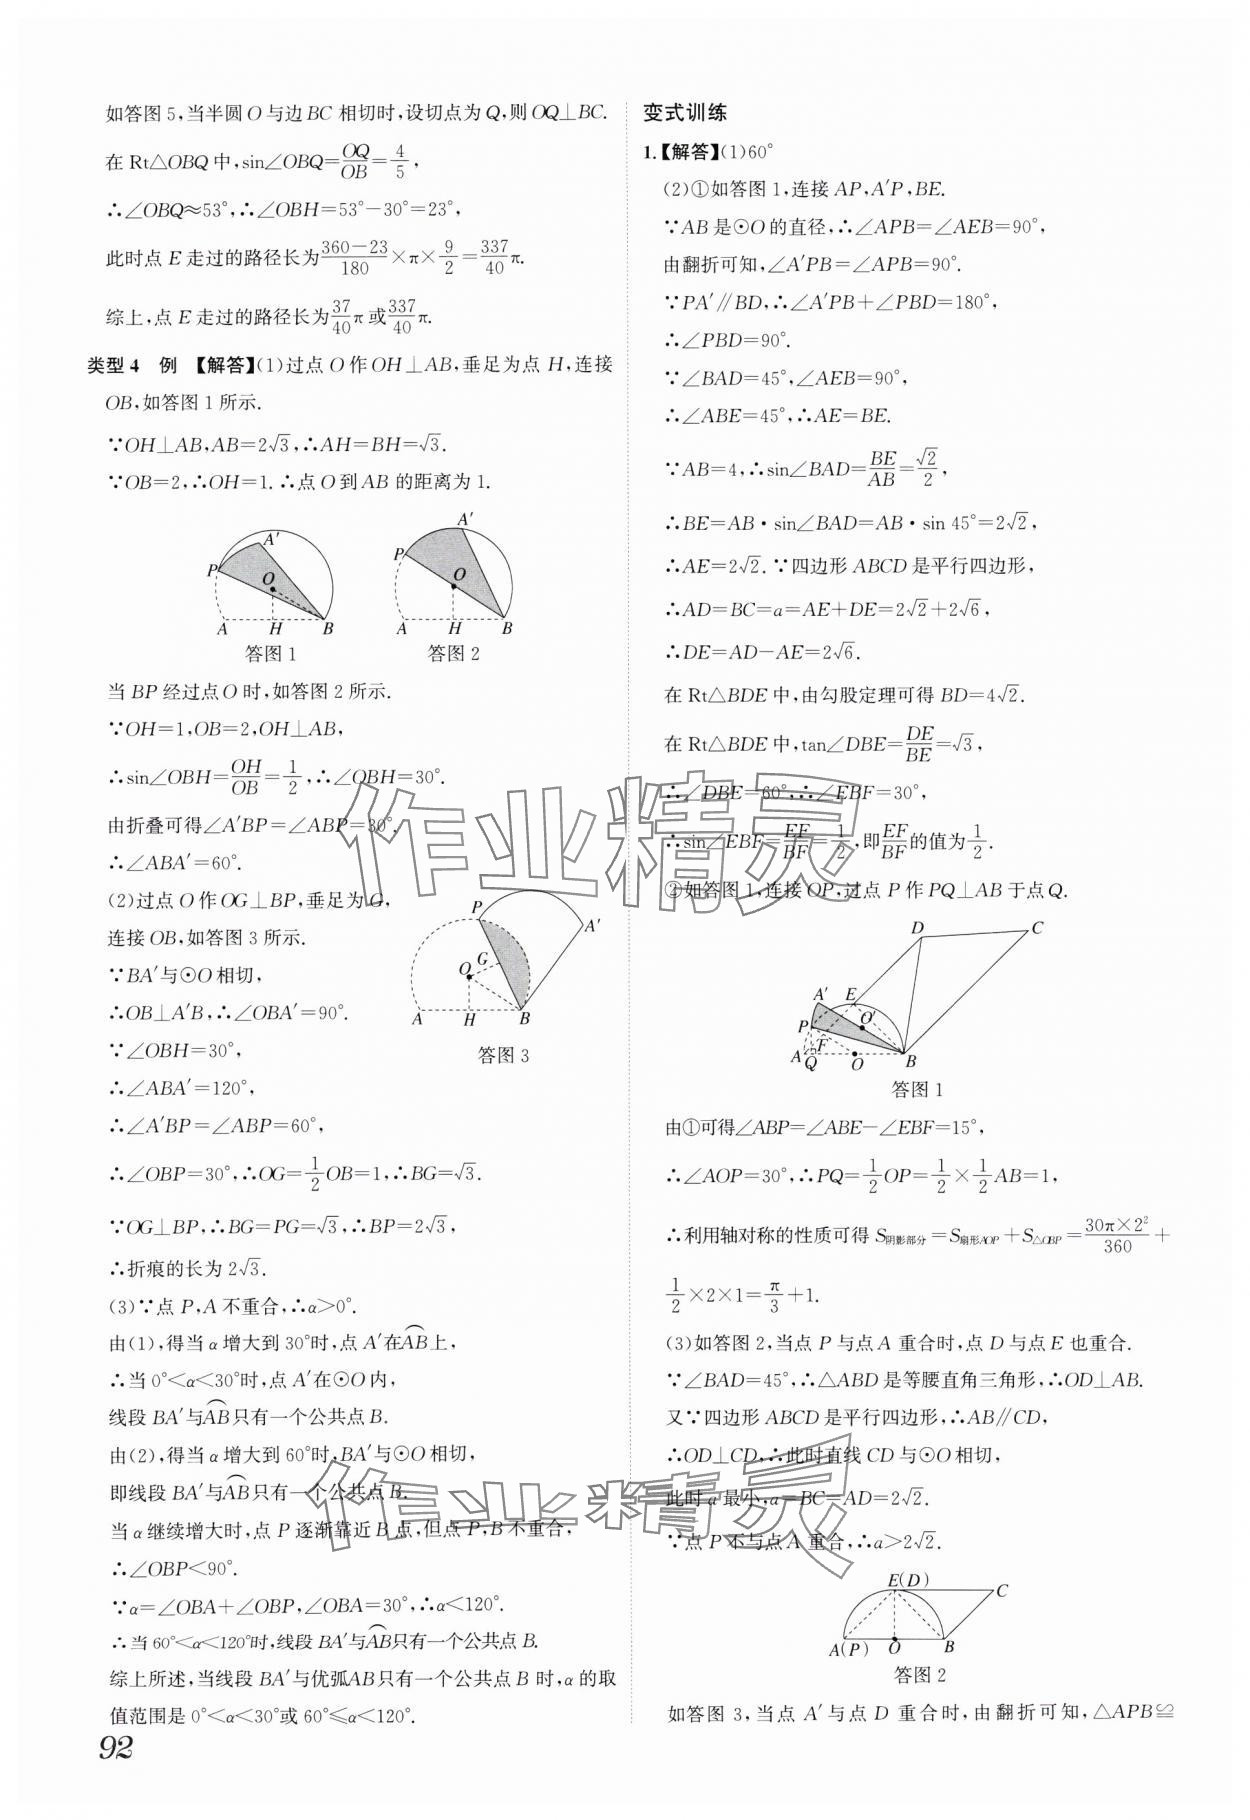 如答图5,当半圆O与边BC相切时,设切点为Q,则OQ⊥BC.
在Rt△OBQ中,sin∠OBQ=OQ/OB=4/5,
∴∠OBQ≈53°,∴∠OBH=53°-30°=23°,
此时点E走过的路径长为(360-23)/180×π×9/2=337/40π.
综上,点E走过的路径长为37/40π或337/40π.
类型4 例 【解答】(1)过点O作OH⊥AB,垂足为点H,连接
OB,如答图1所示.
∵OH⊥AB,AB=2√3,∴AH=BH=√3.
∵OB=2,∴OH=1.∴点O到AB的距离为1.
P A′ O A H B
答图1
P A′ O A H B
答图2
当BP经过点O时,如答图2所示.
∵OH=1,OB=2,OH⊥AB,
∴sin∠OBH=OH/OB=1/2,∴∠OBH=30°.
由折叠可得∠A′BP=∠ABP=30°.
∴∠ABA′=60°.
(2)过点O作OG⊥BP,垂足为G,
连接OB,如答图3所示.
∵BA′与⊙O相切,
∴OB⊥A′B,∴∠OBA′=90°.
∵∠OBH=30°,
∴∠ABA′=120°,
∴∠A′BP=∠ABP=60°,
P A′ G O A H B
答图3
∴∠OBP=30°,∴OG=1/2OB=1,∴BG=√3.
∵OG⊥BP,∴BG=PG=√3,∴BP=2√3,
∴折痕的长为2√3.
(3)∵点P,A不重合,∴α>0°.
由(1),得当α增大到30°时,点A′在⌒AB上,
∴当0°<α<30°时,点A′在⊙O内,
线段BA′与⌒AB只有一个公共点B.
由(2),得当α增大到60°时,BA′与⊙O相切,
即线段BA′与⌒AB只有一个公共点B.
当α继续增大时,点P逐渐靠近B点,但点P,B不重合,
∴∠OBP<90°.
∵α=∠OBA+∠OBP,∠OBA=30°,∴α<120°.
∴当60°≤α<120°时,线段BA′与⌒AB只有一个公共点B.
综上所述,当线段BA′与优弧AB只有一个公共点B时,α的取
值范围是0°<α<30°或60°≤α<120°.
92
变式训练
1.【解答】(1)60°
(2)①如答图1,连接AP,A′P,BE.
∵AB是⊙O的直径,∴∠APB=∠AEB=90°,
由翻折可知,∠A′PB=∠APB=90°.
∵PA′∥BD,∴∠A′PB+∠PBD=180°,
∴∠PBD=90°.
∵∠BAD=45°,∠AEB=90°,
∴∠ABE=45°,∴AE=BE.
∵AB=4,∴sin∠BAD=BE/AB=√2/2,
∴BE=AB·sin∠BAD=AB·sin 45°=2√2,
∴AE=2√2.∵四边形ABCD是平行四边形,
∴AD=BC=a=AE+DE=2√2+2√6,
∴DE=AD-AE=2√6.
在Rt△BDE中,由勾股定理可得BD=4√2.
在Rt△BDE中,tan∠DBE=DE/BE=√3,
∴∠DBE=60°,∴∠EBF=30°,
∴sin∠EBF=EF/BF=1/2,即EF/BF的值为1/2.
②如答图1,连接OP,过点P作PQ⊥AB于点Q.
D C A′ E P O′ F A Q O B
答图1
由①可得∠ABP=∠ABE-∠EBF=15°,
∴∠AOP=30°,∴PQ=1/2OP=1/2×1/2AB=1,
∴利用轴对称的性质可得S阴影部分=S扇形AOP+S△OBP=30π×2²/360+
1/2×2×1=π/3+1.
(3)如答图2,当点P与点A重合时,点D与点E也重合.
∵∠BAD=45°,∴△ABD是等腰直角三角形,∴OD⊥AB.
又∵四边形ABCD是平行四边形,∴AB∥CD,
∴OD⊥CD,∴此时直线CD与⊙O相切.
此时a最小,a=BC=AD=2√2.
∵点P不与点A重合,∴a>2√2.
E(D) C A(P) O B
答图2
如答图3,当点A′与点D重合时,由翻折可知,△APB≌
作业精灵
作业精灵